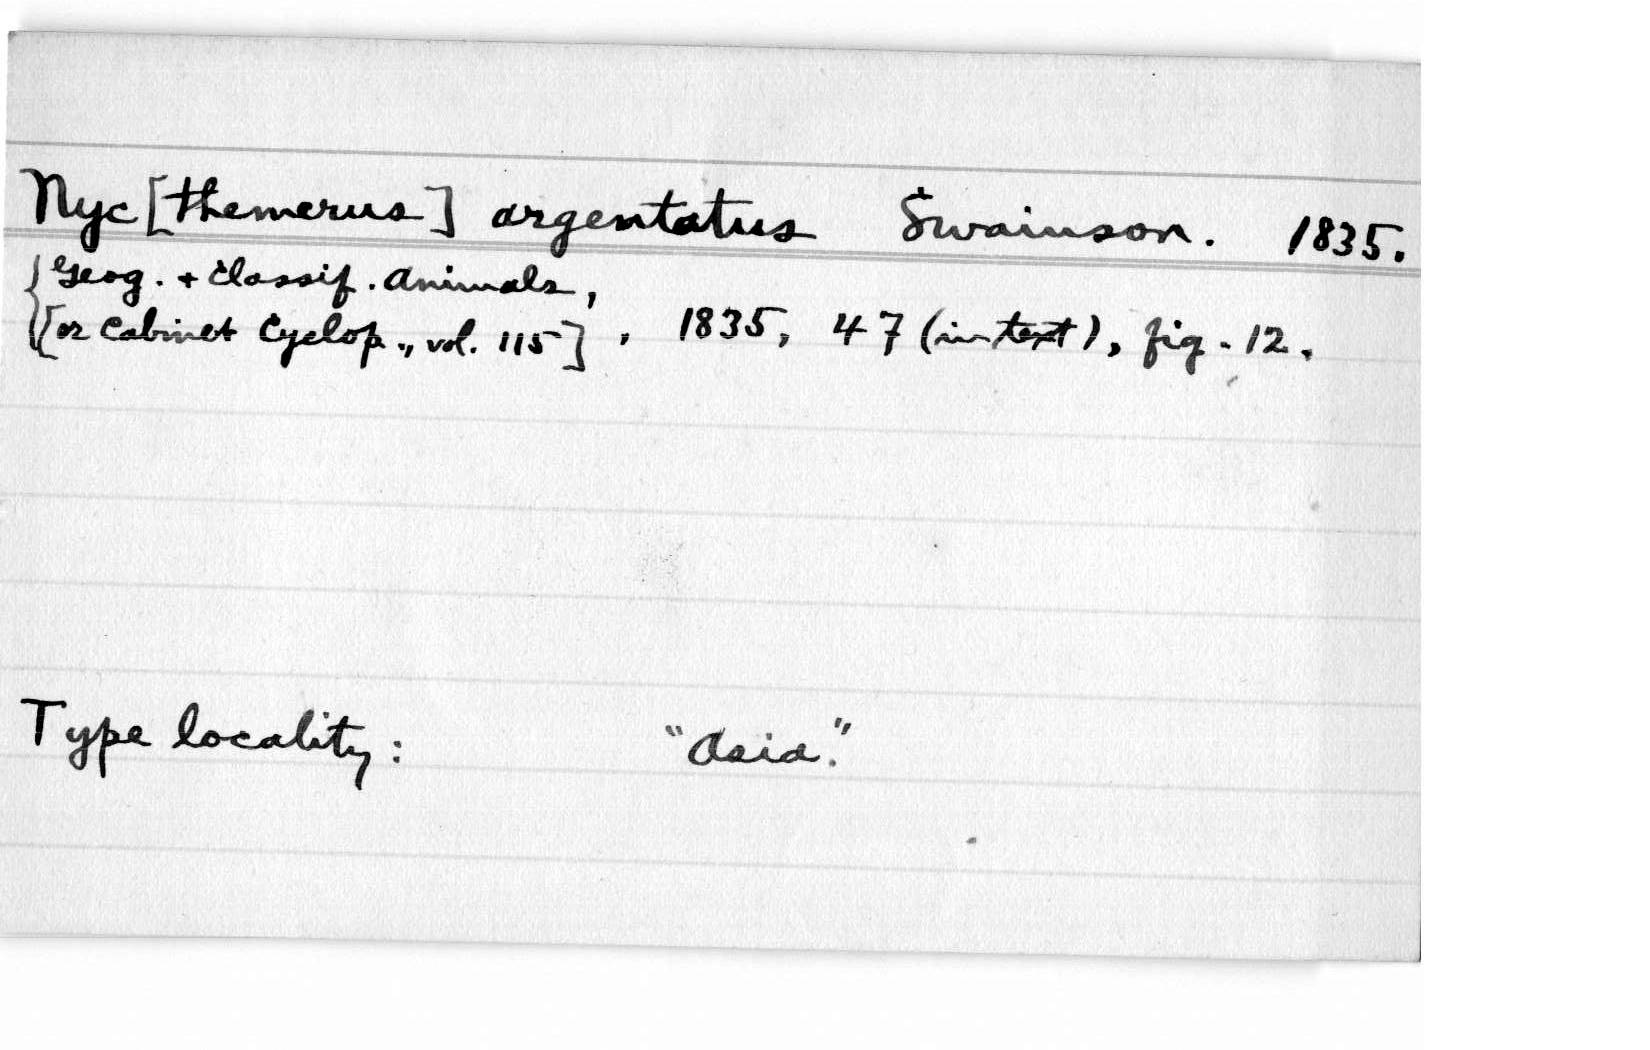 Nyc[themerus] argentatus Swainson. 1835.
Geog. + Classif. Animals,
[or Cabinet Cyclop., vol. 115], 1835, 47 (in text), fig. 12.
Type locality: "Asia."